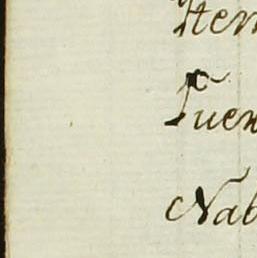 Item
Fuen
Nab